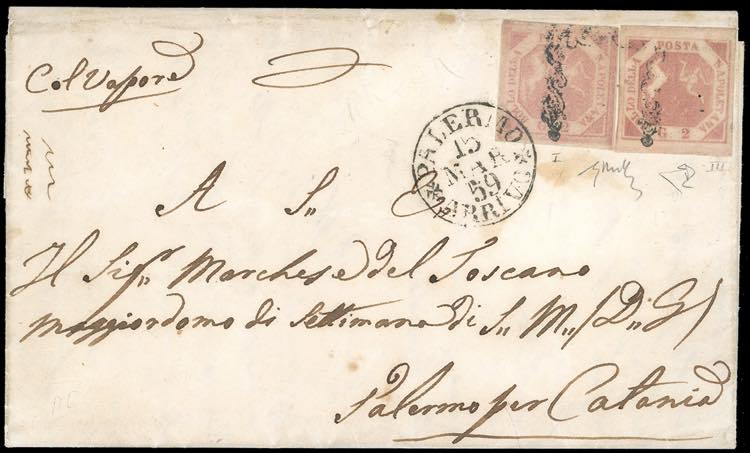 Col Vapore
POSTA NAPOLETANA G. 2 BOLLO DELLA
POSTA NAPOLETANA G. 2 BOLLO DELLA
I
III
PALERMO
15
MAR
59
* ARRIVO *
A S. E.
Il Sigr. Marchese del Toscano
Maggiordomo di Settimana di S. M. (D. G.)
Palermo per Catania